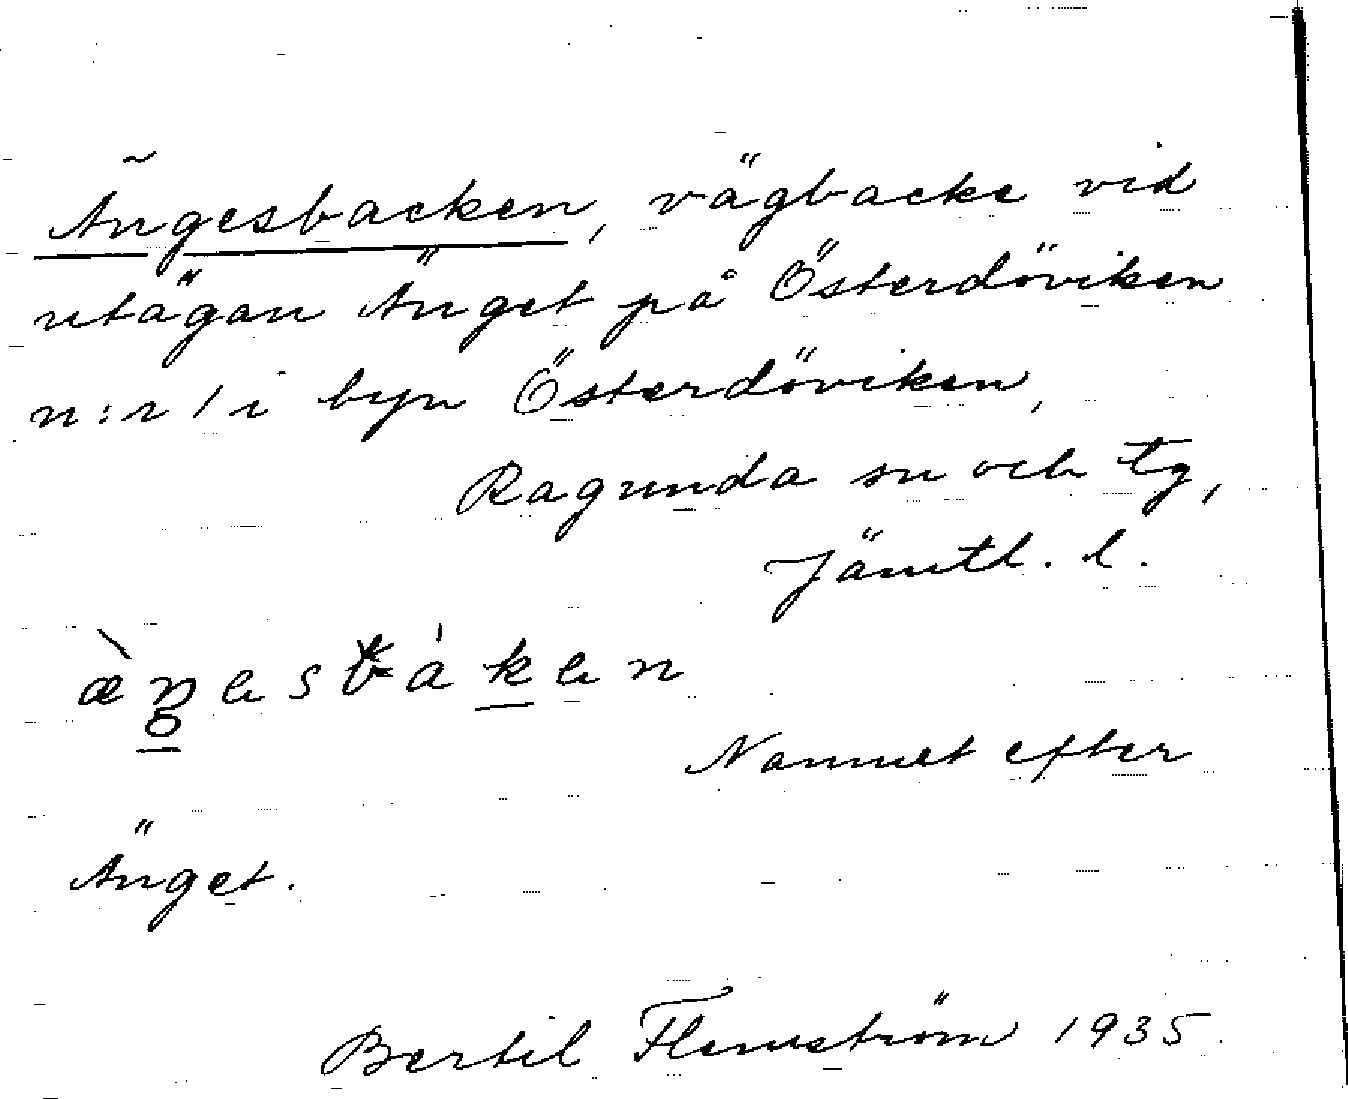 Ängesbacken, vägbacke vid
utägan Änget på Österdöviken
n:r 1 i byn Österdöviken,
Ragunda sn och tg,
Jämtl. l.
Namnet efter
Änget.
Bertil Flemström 1935